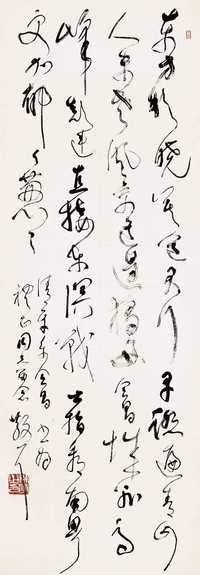 东方欲晓莫道君行早踏遍青山
人未老风景这边独好会昌城外高
峰颠连直接东溟战士指看南粤
更加郁々葱々
清平乐会昌 书为
同志留念